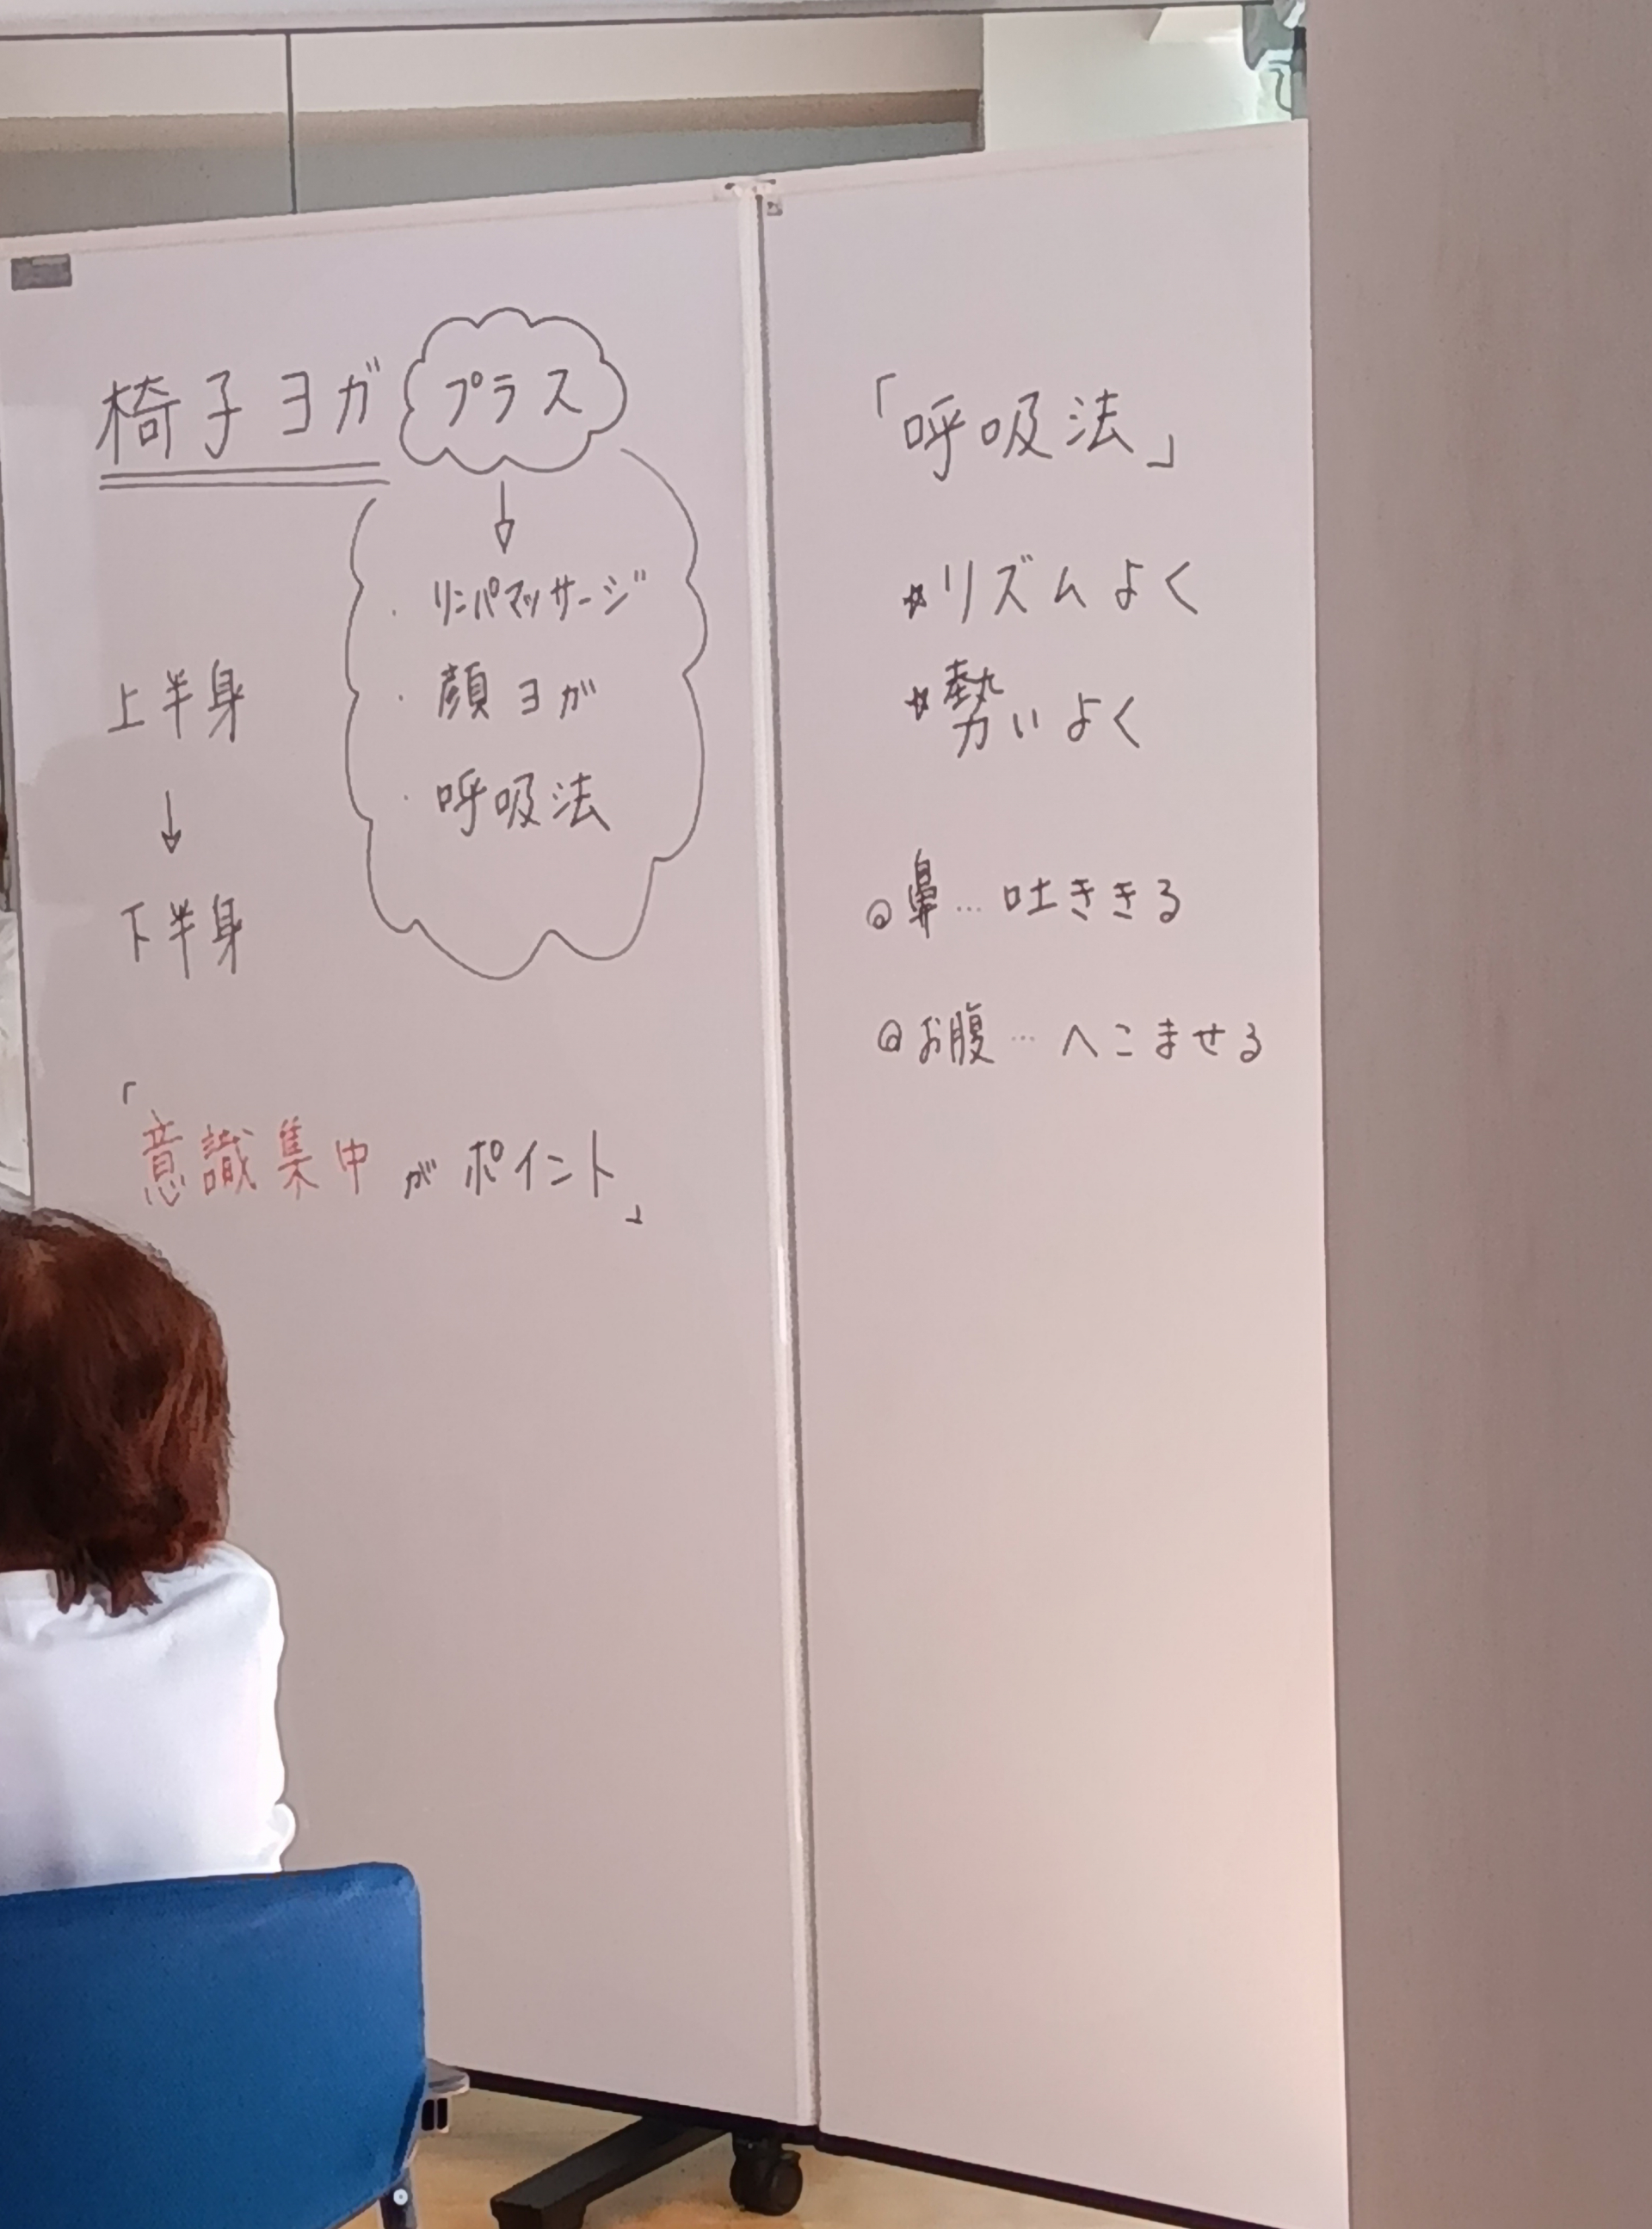 椅子ヨガ プラス
・リンパマッサージ
・顔ヨガ
・呼吸法
上半身
↓
下半身
「意識集中がポイント」
「呼吸法」
☆リズムよく
☆勢いよく
◎鼻…吐ききる
◎お腹…へこませる